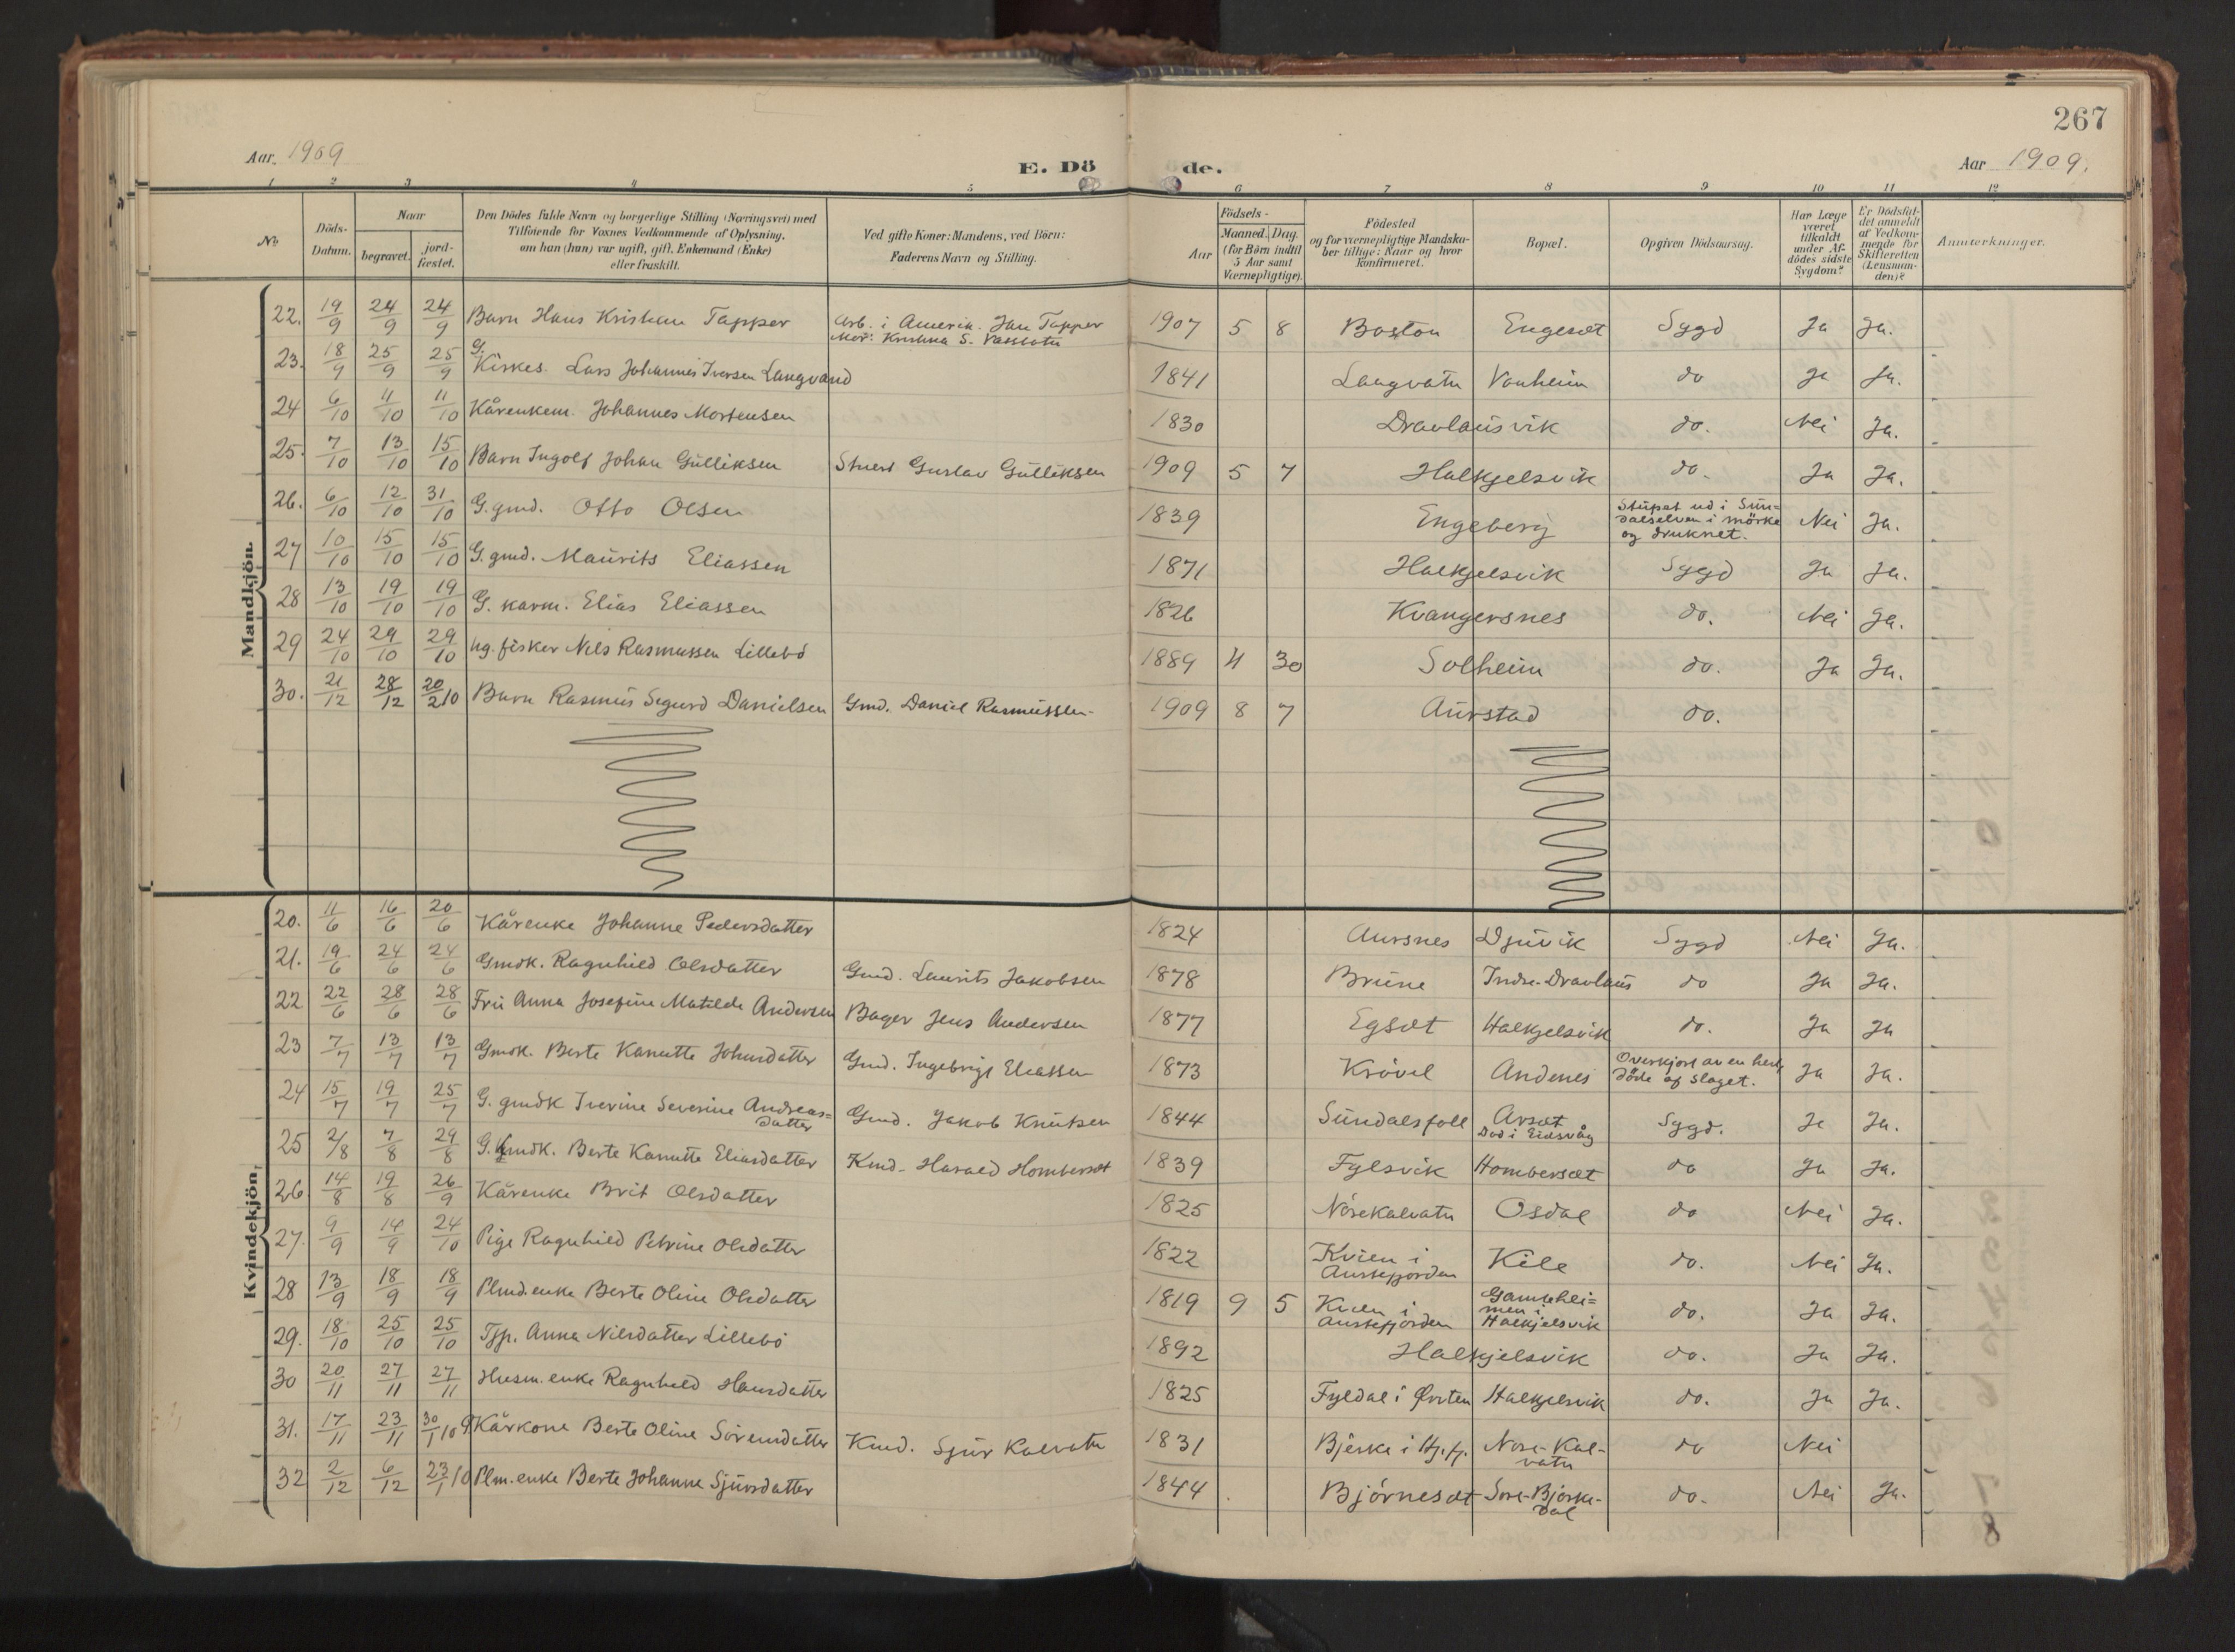 267
Aar. 1909
E. Dö
de.
Aar 1909.
1 2 3 4 5 6 7 8 9 10 11 12
No
Döds-Datum.
Naar
begravet.
jord-fæstet.
Den Dödes fulde Navn og borgerlige Stilling (Næringsvei) med
Tilföiende for Voxnes Vedkommende af Oplysning,
om han (hun) var ugift, gift, Enkemand (Enke)
eller fraskilt.
Ved gifte Koner: Mandens, ved Börn:
Faderens Navn og Stilling.
Födsels-
Aar
Maaned. Dag.
(for Børn indtil
5 Aar samt
Værnepligtige).
Födested
og for værnepligtige Mandska-
ber tillige: Naar og hvor
konfirmeret.
Bopæl.
Opgiven Dödsaarsag.
Har Læge
været
tilkaldt
under Af-
dödes sidste
Sygdom?
Er Dödsfal-
det anmeldt
af Vedkom-
mende for
Skifteretten
(Lensman-
den)?
Anmerkninger.
Mandkjön.
22. 19/9 24/9 24/9 Barn Hans Kristian Tapper Arb. i Amerika. Jan Tapper 1907 5 8 Boston Engeset Sygd Ja Ja.
Mor: Kristina S.
23. 18/9 25/9 25/9 G. Kirkes. Lars Johannes Iversen Langvand 1841 Langvatn Vanheim do Ja Ja.
24 6/10 11/10 11/10 Kårenkem. Johannes Mortensen 1830 Dravlausvik do. Nei Ja.
25. 7/10 13/10 15/10 Barn Ingolf Johan Gulliksen Stuert Gustav Gulliksen 1909 5 7 Halkjelsvik do. Ja Ja.
26. 6/10 12/10 31/10 G. gmd. Otto Olsen 1839 Engeberg Stupet ud i Sun=
dalselven i mörke
og druknet. Nei Ja.
27 10/10 15/10 15/10 G. gmd. Maurits Eliassen 1871 Halkjelsvik Sygd Ja Ja.
28 13/10 19/10 19/10 G. karm. Elias Eliassen 1826 Kvangersnes do. Nei Ja.
29 24/10 29/10 29/10 ug. fisker Nils Rasmussen Lillebö 1889 4 30 Solheim do. Ja Ja.
30. 21/12 28/12 20/2 10 Barn Rasmus Sigurd Danielsen Gmd. Daniel Rasmussen 1909 8 7 Aurstad do.
Kvindekjön.
20. 11/6 16/6 20/6 Kårenke Johanne Pedersdatter 1824 Aursnes Djuvik Sygd Nei Ja.
21. 19/6 24/6 24/6 Gmdk. Ragnhild Olsdatter Gmd. Laurits Jakobsen 1878 Brune Indre-Dravlaus do Ja Ja.
22 22/6 28/6 28/6 Fru Anna Josefine Matilde Andersen Bager Jens Andersen 1877 Egset Halkjelsvik do. Ja Ja
23 7/7 13/7 13/7 Gmdk. Berte Kanutte Johnsdatter Gmd. Ingebrigt Eliassen 1873 Krövel Andenes Overkjort av en hest,
döde af slaget. Ja Ja.
24 15/7 19/7 25/7 G. gmdk Iverine Severine Andreas=
datter Gmd. Jakob Knutsen 1844 Sundalsfoll Arset
Död i Eidsvåg Sygd. Ja Ja.
25 2/8 7/8 29/8 G. Kmdk. Berte Kanutte Eliasdatter Kmd. Harald Homberset 1839 Fylsvik Homberset do Ja Ja.
26. 14/8 19/8 26/9 Kårenke Brit Olsdatter 1825 Nörekalvatn Osdal do Nei Ja.
27. 9/9 14/9 24/10 Pige Ragnhild Petrine Olsdatter 1822 Kvien i
Austefjorden Kile do. Nei Ja.
28 13/9 18/9 18/9 Plmd.enke Berte Oline Olsdatter 1819 9 5 Kvien i
Austefjorden Gamlehei=
men i
Halkjelsvik do. Ja Ja.
29. 18/10 25/10 25/10 Tjp. Anna Nilsdatter Lillebö 1892 Halkjelsvik do. Ja Ja.
30 20/11 27/11 27/11 Husm.enke Ragnhild Hansdatter 1825 Fyldal i Örsten Halkjelsvik do. Ja Ja.
31. 17/11 23/11 30/1 10 G. Kårkone Berte Oline Sörensdatter Kmd. Sjur Kalvatn 1831 Bjerke i Hj.fj. Nore-Kal-
vatn do Nei
32 2/12 6/12 23/1 10 Plm.enke Berte Johanne Sjursdatter 1844 Björneset Sore-Bjorke-
dal do. Nei Ja.